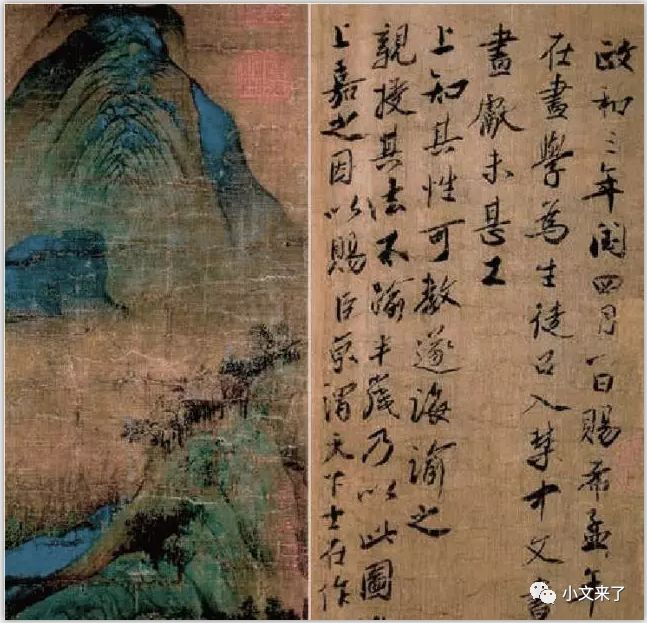 政和三年閏四月一日賜希孟年
在畫學為生徒召入禁中文書
畫獻未甚工
上知其性可教遂誨諭之
親授其法不踰半歲乃以此圖
上嘉之因以賜臣京謂天下士在作
小文来了